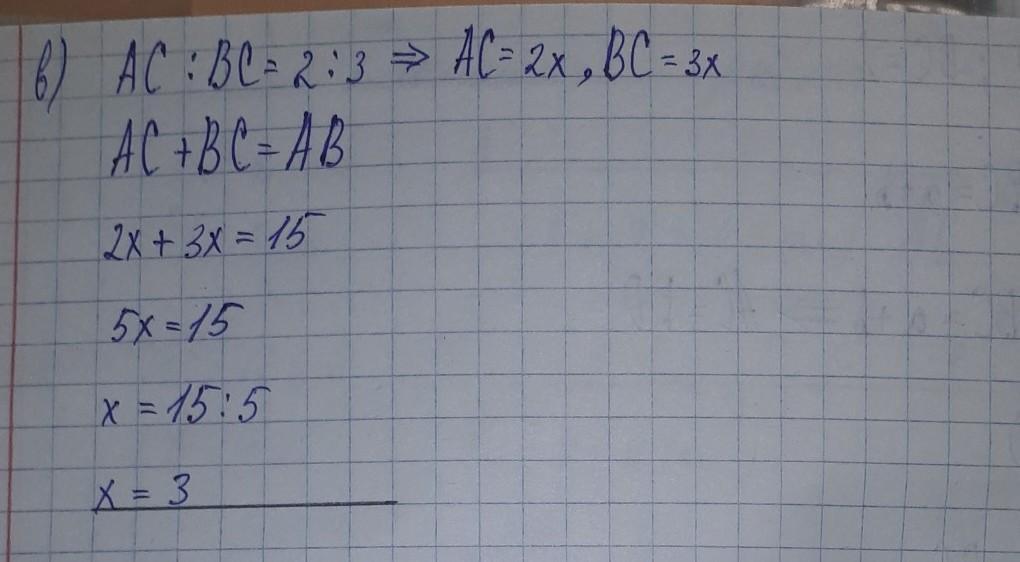 в) AC : BC = 2 : 3 ⇒ AC = 2x , BC = 3x
AC + BC = AB
2x + 3x = 15
5x = 15
x = 15 : 5
x = 3